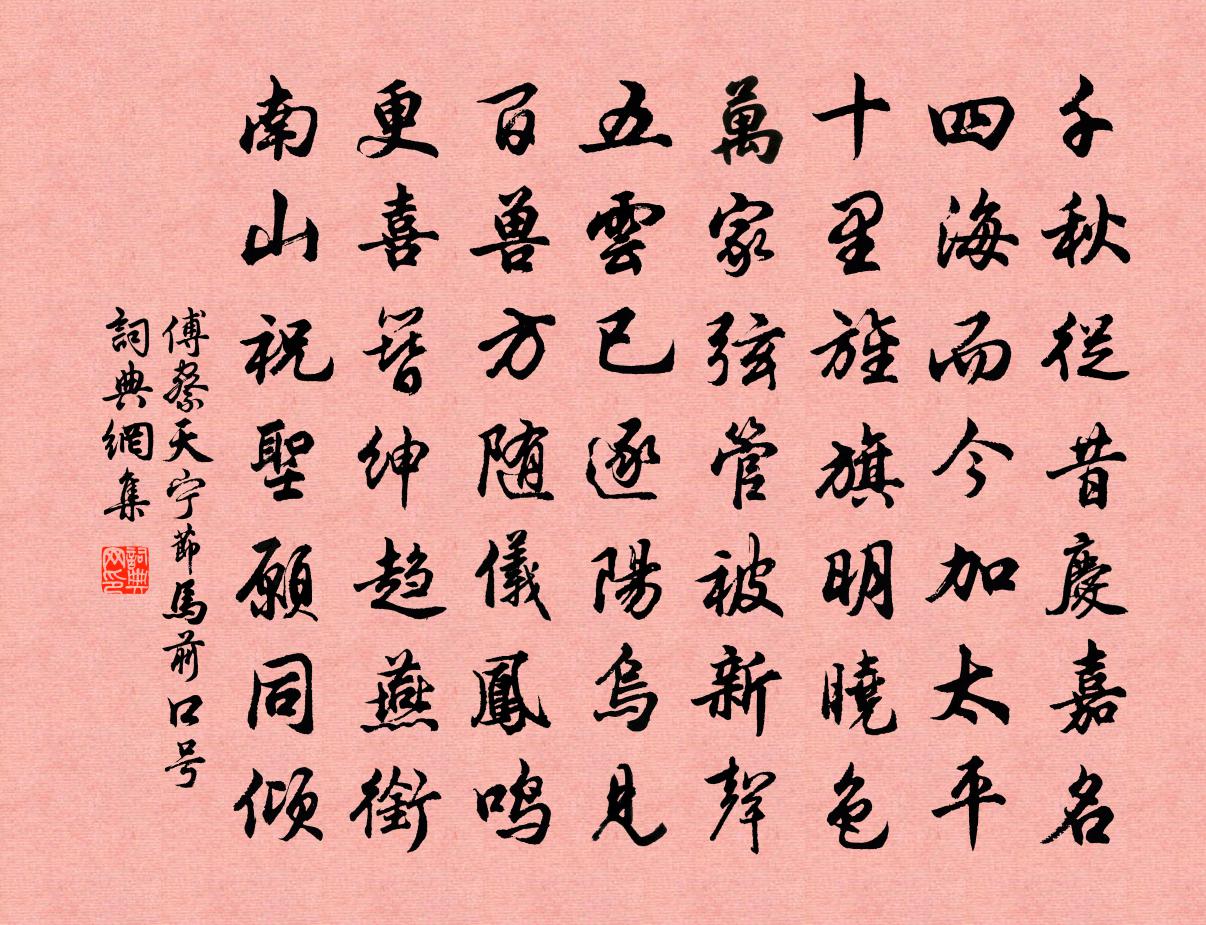 千秋從昔慶嘉名
四海而今加太平
十里旌旗明曉色
萬家弦管被新聲
五雲已逐陽烏見
百兽方随儀鳳鸣
更喜簪紳趋燕衎
南山祝聖願同倾
傅察天宁節馬前口号
詞典網集
詞典网印